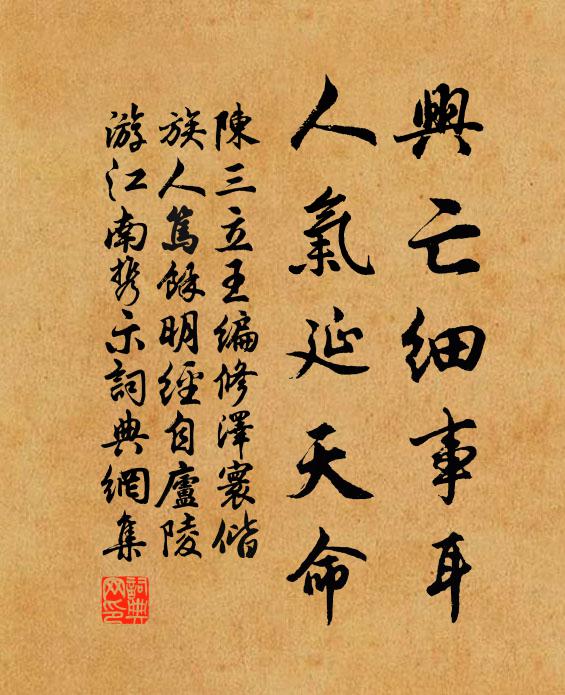 興亡細事耳
人氣延天命
陳三立王編修澤寰偕
族人篤餘明經自廬陵
游江南携示詞典網集
詞典
网印